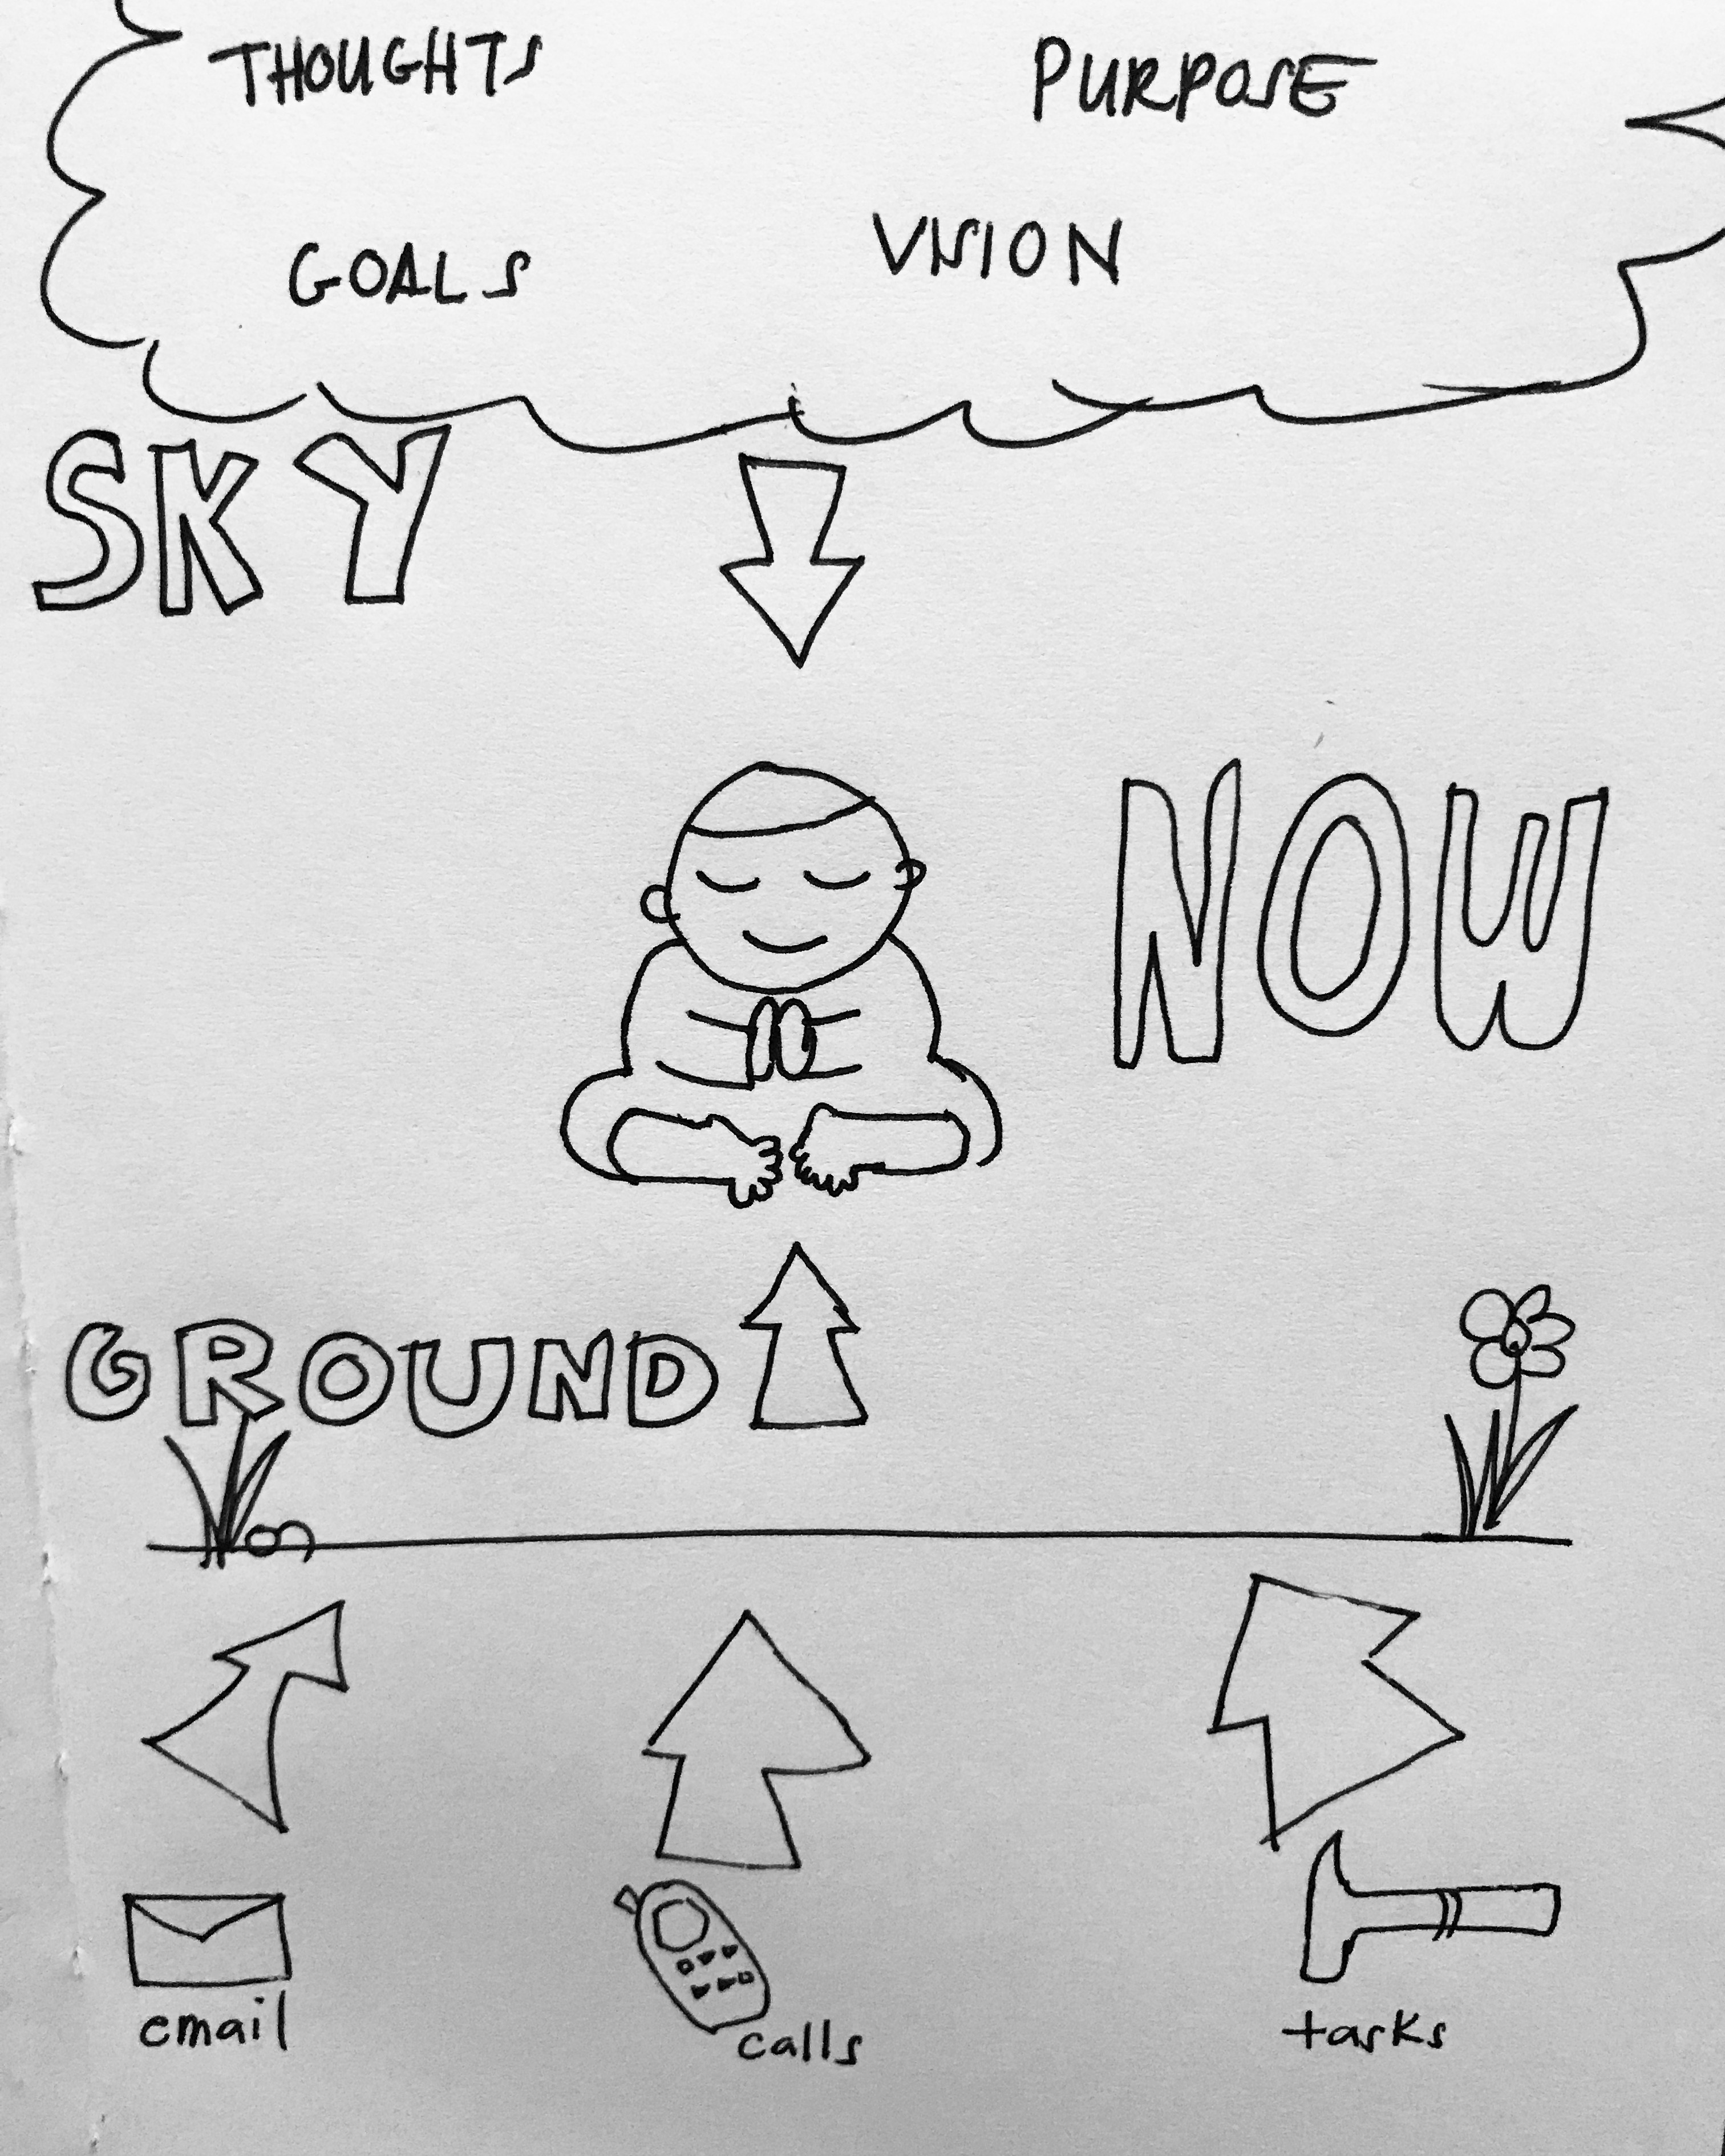 THOUGHTS PURPOSE
GOALS VISION
SKY
NOW
GROUND
email calls tasks